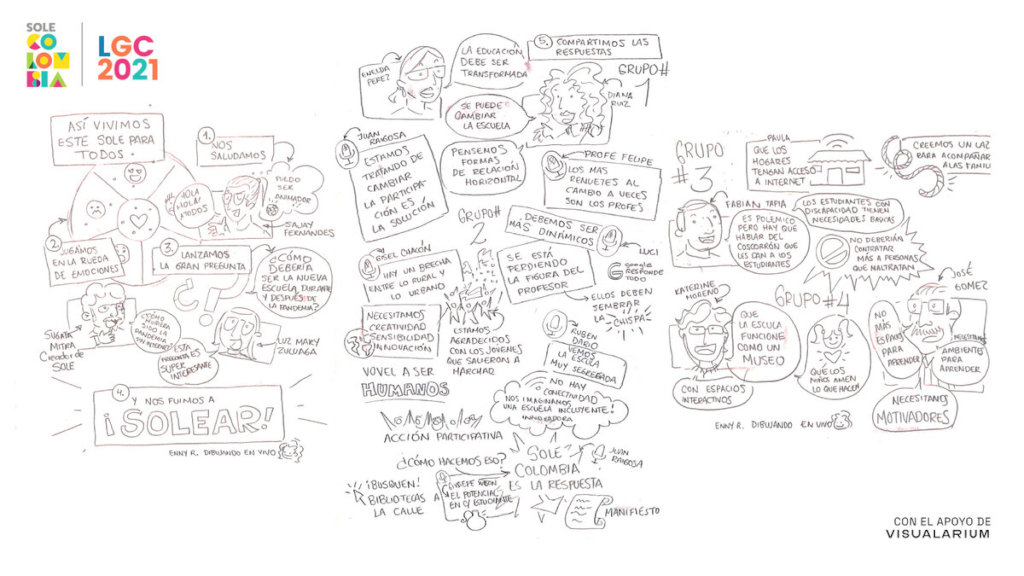 SOLE
COLOMBIA
LGC
2021
ASÍ VIVIMOS
ESTE SOLE PARA
TODOS.
1.
NOS
SALUDAMOS
¡HOLA
HOLA!
TODOS
PUEDO
SER
ANIMADOR
SAJAY
FERNANDES
2.
JUGAMOS
EN LA RUEDA
DE EMOCIONES
3.
LANZAMOS
LA GRAN PREGUNTA
¿CÓMO
DEBERÍA
SER LA NUEVA
ESCUELA DURANTE
Y DESPUÉS DE
LA PANDEMIA?
SUGATA
MITRA
CREADOR DE
SOLE
¿CÓMO
HUBIERA
SIDO LA
PANDEMIA
SIN INTERNET?
ESTA
PREGUNTA ES
SUPER
INTERESANTE
LUZ MARY
ZULUAGA
4.
Y NOS FUIMOS A
¡SOLEAR!
ENNY R. DIBUJANDO EN VIVO
5. COMPARTIMOS LAS
RESPUESTAS
LA EDUCACIÓN
DEBE SER
TRANSFORMADA
GRUPO#
1
DIANA
RUIZ
SE PUEDE
CAMBIAR
LA ESCUELA
JUAN
RAIGOSA
ESTAMOS
TRATANDO DE
CAMBIAR
LA PARTICIPA-
CIÓN ES
LA SOLUCIÓN
PENSEMOS
FORMAS
DE RELACIÓN
HORIZONTAL
PROFE FELIPE
LOS MAS
RENUETES AL
CAMBIO A VECES
SON LOS PROFES
GRUPO#
2
DEBEMOS SER
MÁS DINÁMICOS
LUCI
GISEL CHACÓN
HAY UN BRECHA
ENTRE LO RURAL Y
LO URBANO
SE ESTÁ
PERDIENDO
LA FIGURA DEL
PROFESOR
GOOGLE
RESPONDE
TODO
ELLOS DEBEN
SEMBRAR
LA CHISPA
NECESITAMOS
CREATIVIDAD
SENSIBILIDAD
INNOVACIÓN
ESTAMOS
AGRADECIDOS
CON LOS JÓVENES
QUE SALIERON A
MARCHAR
RUBEN
DARIO
VEMOS
LA ESCUELA
MUY SEGREGADA
VOVEL A SER
HUMANOS
NO HAY
CONECTIVIDAD
NOS IMAGINAMOS
UNA ESCUELA INCLUYENTE!
INNOVADORA
ACCIÓN PARTICIPATIVA
¿CÓMO HACEMOS ESO?
SOLE
COLOMBIA
ES LA RESPUESTA
JUAN
RAIGOSA
¡BUSQUEN!
BIBLIOTECAS A
LA CALLE
EL POTENCIAL
EN C/ ESTUDIANTE
MANIFIESTO
GRUPO
#3
PAULA
QUE LOS
HOGARES
TENGAN ACCESO
A INTERNET
CREEMOS UN LAZ
PARA ACOMPAÑAR
A LAS FAMILI
FABIAN TAPIA
ES POLEMICO
PERO HAY QUE
HABLAR DEL
COSCORRÓN QUE
LES DAN A LOS
ESTUDIANTES
LOS ESTUDIANTES CON
DISCAPACIDAD TIENEN
NECESIDADES BÁSICAS
NO DEBERÍAN
CONTRATAR
MÁS A PERSONAS
QUE MALTRATAN
KATERINE
MORENO
GRUPO#4
JOSÉ
GOMEZ
QUE
LA ESCULA
FUNCIONE
COMO UN
MUSEO
CON ESPACIOS
INTERACTIVOS
QUE LOS
NIÑOS AMEN
LO QUE HACEN
NO
MÁS
ESPACIOS
PARA
APRENDER
NECESITAMOS
AMBIENTES
PARA
APRENDER
NECESITAMOS
MOTIVADORES
ENNY R. DIBUJANDO EN VIVO
CON EL APOYO DE
VISUALARIUM